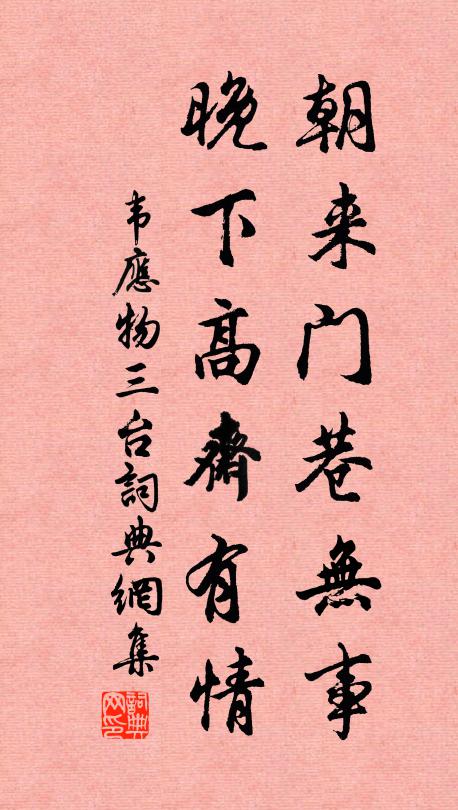 朝来门巷無事
晚下高齋有情
韦應物三台詞典網集
詞典网印